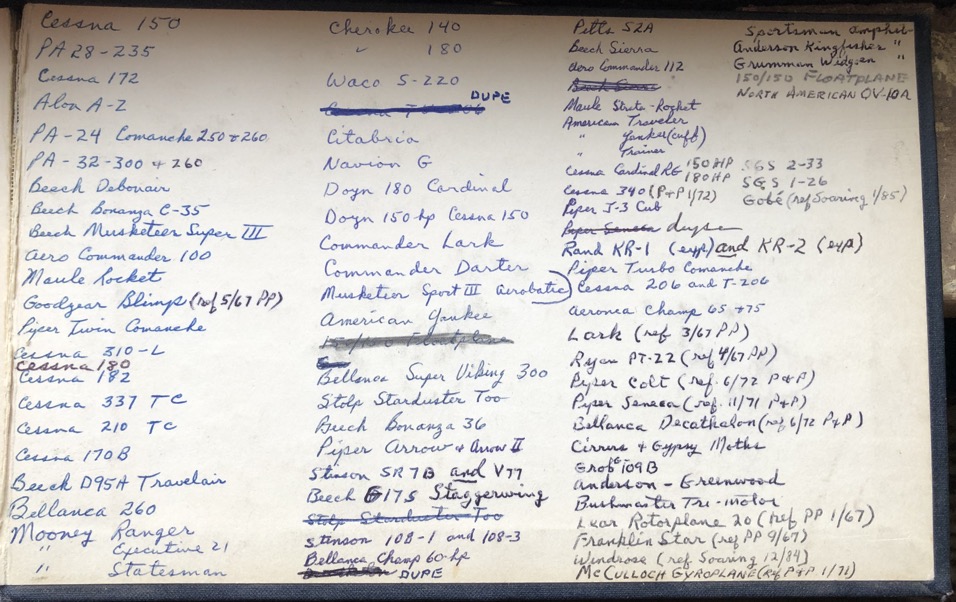 Cessna 150
PA 28-235
Cessna 172
Alon A-2
PA-24 Comanche 250 & 260
PA-32-300 & 260
Beech Debonair
Beech Bonanza C-35
Beech Musketeer Super III
Aero Commander 100
Maule Rocket
Goodyear Blimp (ref 5/67 PP)
Piper Twin Comanche
Cessna 310-L
Cessna 180
Cessna 182
Cessna 337 TC
Cessna 210 TC
Cessna 170B
Beech D95A Travelair
Bellanca 260
Mooney Ranger
" Executive 21
" Statesman
Cherokee 140
" 180
Waco S-220
DUPE
Citabria
Navion G
Doyn 180 Cardinal
Doyn 150-hp Cessna 150
Commander Lark
Commander Darter
Musketeer Sport III (aerobatic)
American Yankee
150/150 Floatplane
Bellanca Super Viking 300
Stolp Starduster Too
Beech Bonanza 36
Piper Arrow & Arrow II
Stinson SR7B and V77
Beech G17S Staggerwing
Stolp Starduster Too
Stinson 108-1 and 108-3
Bellanca Champ 60-hp
DUPE
Pitts S2A
Beech Sierra
Aero Commander 112
Maule Strata-Rocket
American Traveler
" Yankee (cuff)
" Trainer
Cessna Cardinal RG 150 HP
180 HP
Cessna 340 (P&P 1/72)
Piper J-3 Cub
Piper Seneca dupe
Rand KR-1 (exp) and KR-2 (exp)
Piper Turbo Comanche
Cessna 206 and T-206
Aeronca Champ 65 & 75
Lark (ref 3/67 PP)
Ryan PT-22 (ref 4/67 PP)
Piper Colt (ref. 6/72 P&P)
Piper Seneca (ref. 11/71 P&P)
Bellanca Decathalon (ref 6/72 P&P)
Cirrus & Gypsy Moths
Grob G109B
Anderson-Greenwood
Bushmaster Tri-motor
Lear Rotorplane 20 (ref PP 1/67)
Franklin Star (ref PP 9/67)
Windrose (ref Soaring 12/84)
McCULLOCH GYROPLANE (ref P&P 1/71)
Sportsman amphib-
Anderson Kingfisher "
Grumman Widgeon "
150/150 FLOATPLANE
NORTH AMERICAN OV-10A
SGS 2-33
SGS 1-26
Gobé (ref Soaring 1/85)